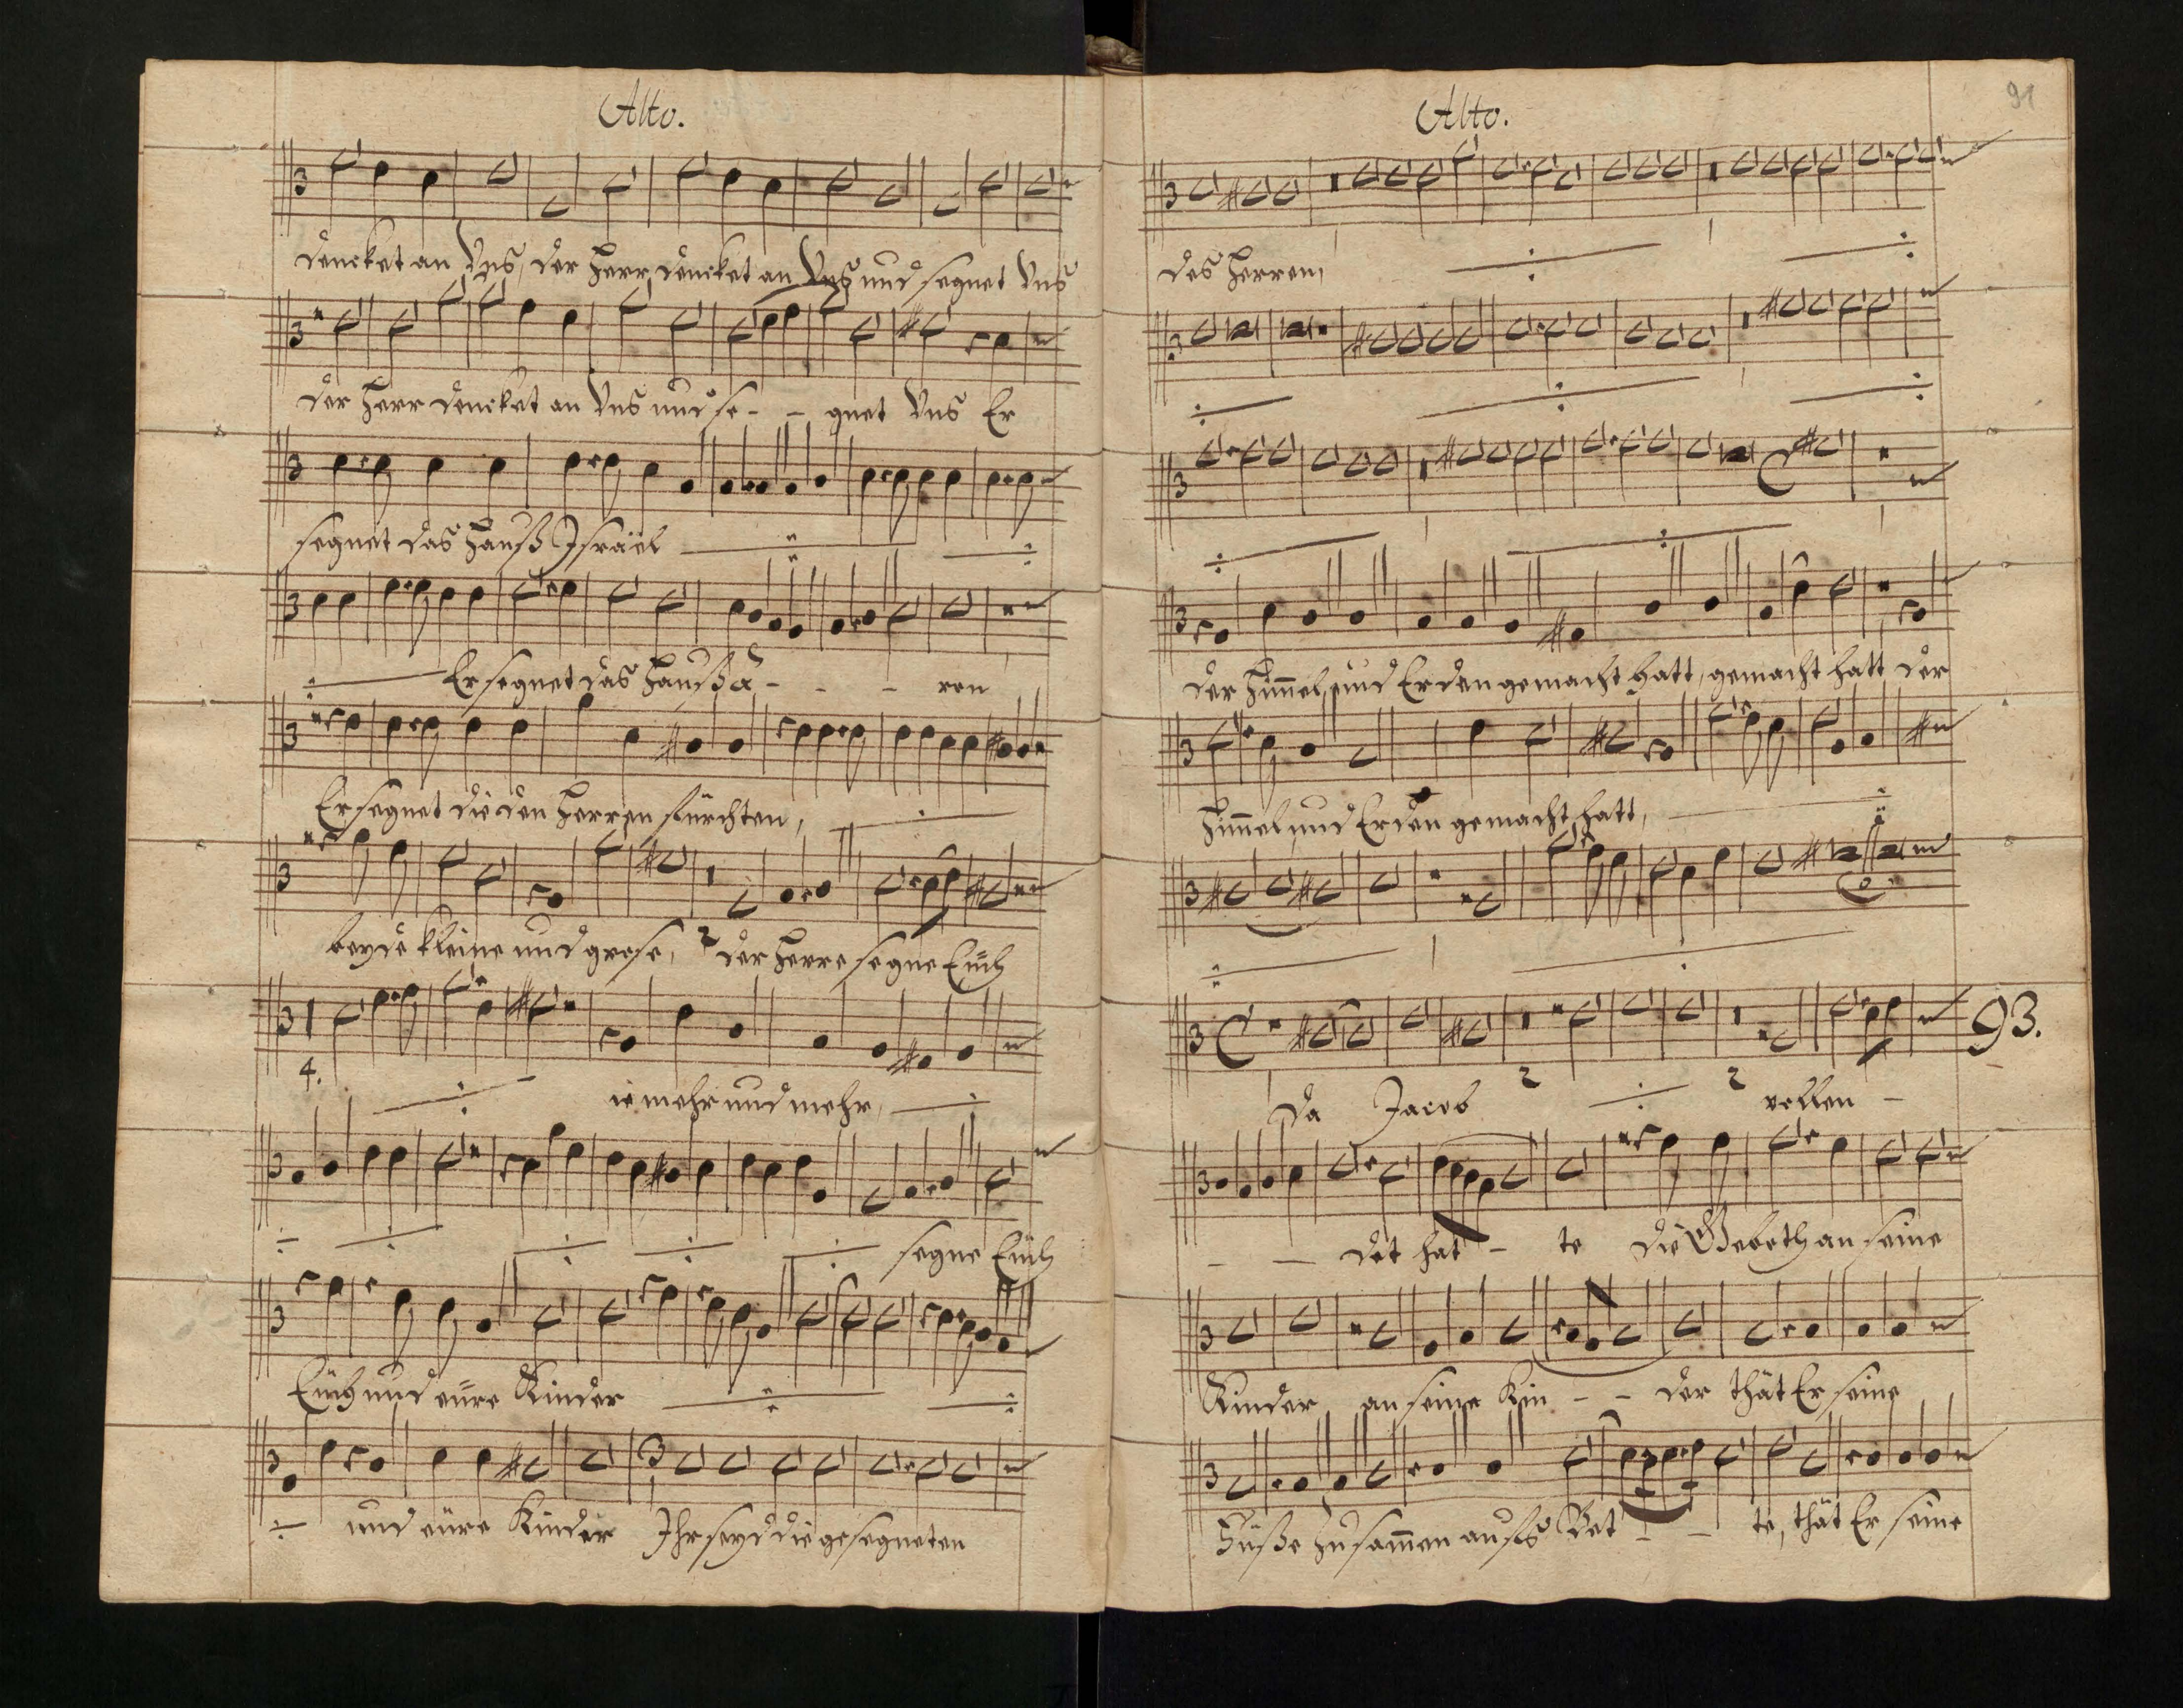 Alto.
dencket an Vns, der Herr, dencket an Vns und segnet Vns
der Herr dencket an Vns und se- - gnet Vns Er
segnet das Hauß Israël
Er segnet das Hauß A- - - ron
Er segnet die den Herren fürchten,
beyde kleine und grose, 2 der Herre segne Euch
4.
ie mehr und mehr,
segne Euch
Euch und eure Kinder
und eure Kinder Ihr seyd die gesegneten
Alto.
91
des Herren,
der Himel, und Erden gemacht hatt, gemacht hatt der
Himel und Erden gemacht hatt,
93.
Da Jacob 2 2 vollen -
- det hat - te die Geboth an seine
Kinder an seine Kin - - der thät Er seine
Füße zusamen aufs Bet - - te, thät Er seine